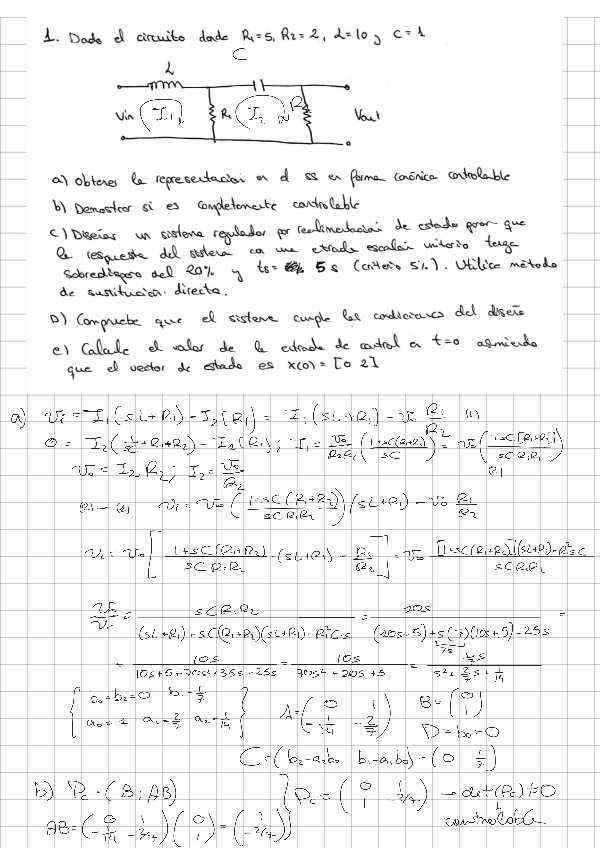 1. Dado el circuito donde R1=5, R2=2, L=10 y C=1
C
L
Vin I1 R1 I2 R2 Vout
a) obtener la representación en el ss en forma canónica controlable
b) Demostrar si es completamente controlable
c) Diseñar un sistema regulador por realimentación de estado para que
la respuesta del sistema con una entrada escalón unitario tenga
sobredisparo del 20% y ts= 5 s (criterio 5%). Utilice método
de sustitución directa.
D) Compruebe que el sistema cumple las condiciones del diseño
e) Calcule el valor de la entrada de control en t=0 asumiendo
que el vector de estado es x(0) = [0 2]
a) Vi = I1(sL+R1) - I2(R1) = I1(sL+R1) - Vo R1/R2 (1)
0 = I2(1/sC + R1+R2) - I1(R1); I1 = Vo/R2R1 (1+sC(R1+R2)/sC) = Vo(1+sC[R1+R2]/sCR1R2) (2)
Vo = I2 R2; I2 = Vo/R2
(2) → (1) Vi = Vo (1+sC(R1+R2)/sCR1R2)(sL+R1) - Vo R1/R2
Vi = Vo [1+sC(R1+R2)/sCR1R2 · (sL+R1) - R1/R2] = Vo [1+sC(R1+R2)](sL+R1)-R1²sC/sCR1R2
Vo/Vi = sCR1R2/(sL+R1)+sC(R1+R2)(sL+R1)-R1²C·s = =
= 10s/10s+5+70s²+35s-25s = 10s/70s²+20s+5 = 1/7 s/s²+2/7 s+1/14
{b0=b2=0 b1=1/7
a0=1 a1=2/7 a2=1/14} A=(0 1 -1/14 -2/7) B=(0 1)
D=b0=0
C=(b2-a2b0 b1-a1b0)=(0 1/7)
b) Pc=(B;AB) } Pc=(0 1 1 -2/7) → det(Pc)≠0
AB=(0 1 -1/14 -2/7)(0 1)=(1 -2/7) controlable